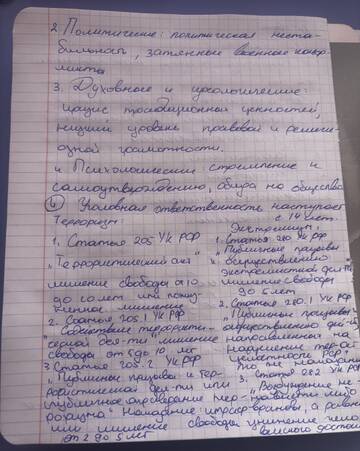 2. Политические: политическая неста-
бильность, затяжные военные конф-
ликты
3. Духовные и идеологические:
кризис традиционных ценностей,
низкий уровень правовой и религи-
озной грамотности.
4. Психологические стремление к
самоутверждению, обида на общество
4) Уголовная ответственность наступает
с 14 лет.
Терроризм:
1. Статья 205 УК РФ
"Террористический акт"
лишение свободы от 10
до 20 лет или пожиз-
ненное лишение
2. Статья 205.1 УК РФ
"Содействие террористи-
ческой дея-ти" лишение
свободы от 5 до 10 лет
3. Статья 205.2 УК РФ
"Публичные призывы к тер-
рористической дея-ти или
публичное оправдание тер-
роризма"
или лишение свободы
от 2 до 5 лет
Экстремизм:
1. Статья 280 УК РФ
"Публичные призывы
к осуществлению
экстремистской дея-ти"
лишение свободы
до 5 лет
2. Статья 280.1 УК РФ
"Публичные призывы к
осуществлению дей-ий
направленных на
нарушение тер-ой
целостности РФ"
3. Статья 282 УК РФ
"Возбуждение не-
нависти либо
вражды, а равно
унижение чело-
веческого достоин